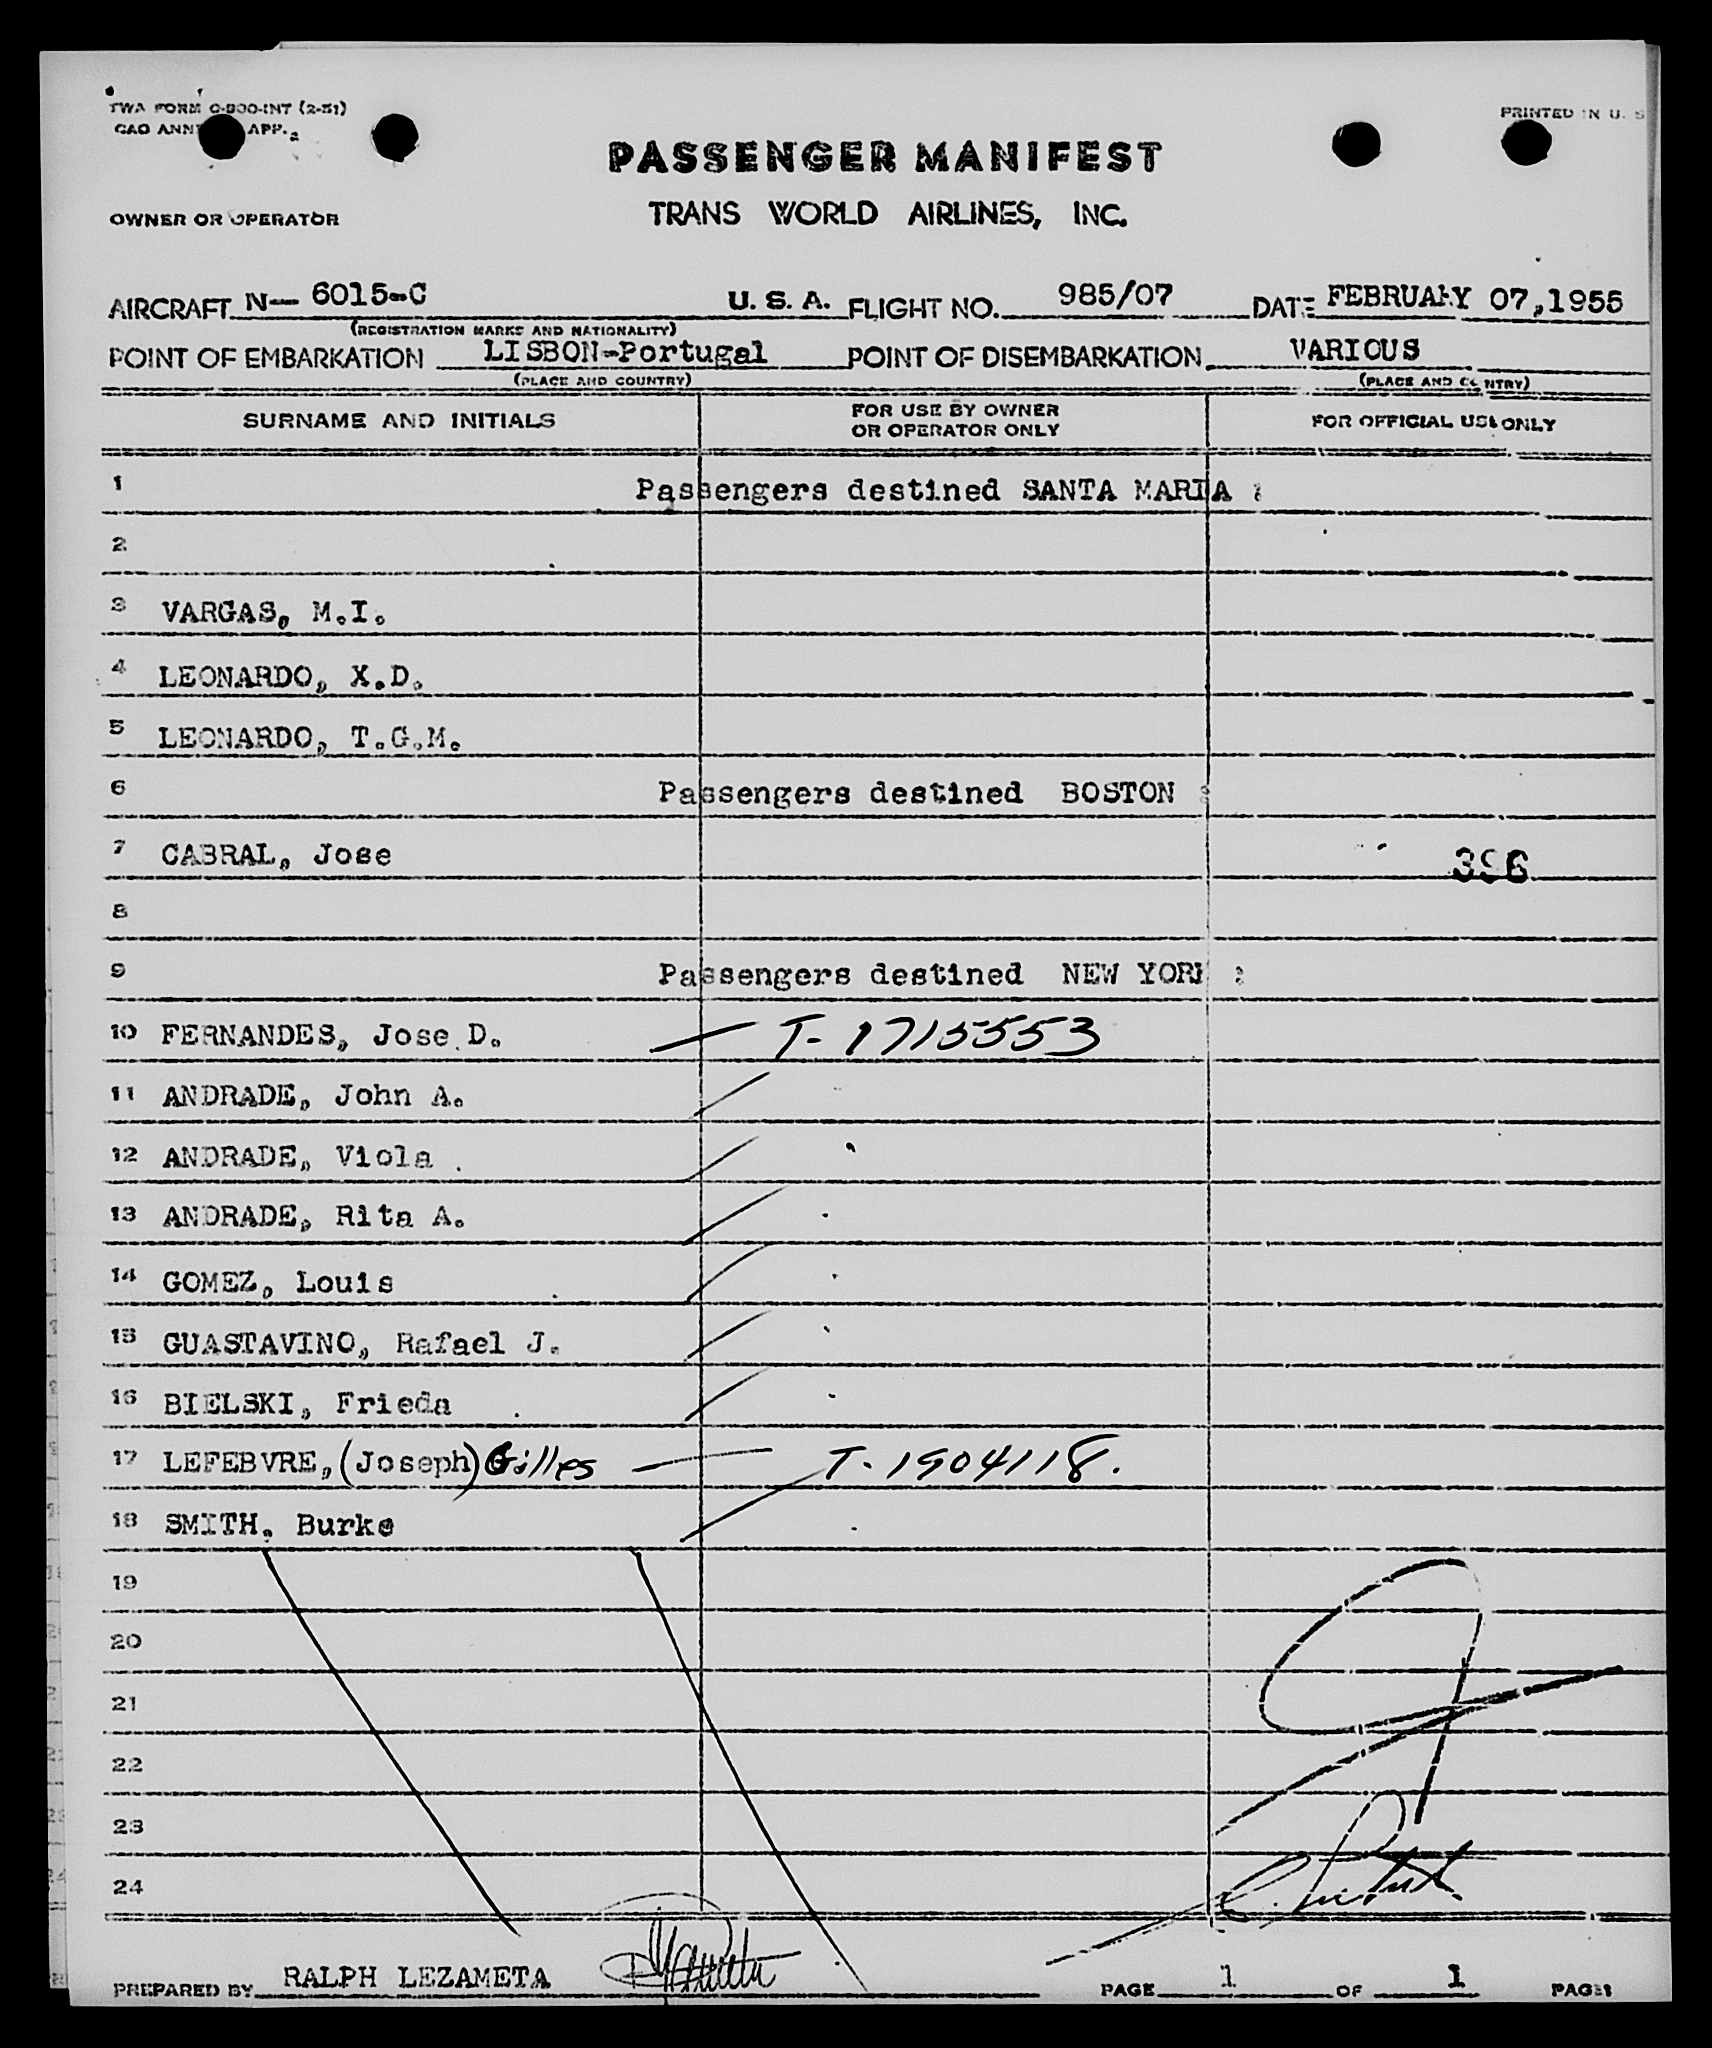 TWA FORM C-900-INT (2-51)
PRINTED IN U. S
CAO APP. 2
PASSENGER MANIFEST
OWNER OR OPERATOR
TRANS WORLD AIRLINES, INC.
AIRCRAFT N- 6015-C U. S. A. FLIGHT NO. 985/07 DATE FEBRUARY 07,1955
(REGISTRATION MARKS AND NATIONALITY)
POINT OF EMBARKATION LISBON-Portugal POINT OF DISEMBARKATION VARIOUS
(PLACE AND COUNTRY) (PLACE AND COUNTRY)
SURNAME AND INITIALS FOR USE BY OWNER OR OPERATOR ONLY FOR OFFICIAL USE ONLY
1 Passengers destined SANTA MARIA :
2
3 VARGAS, M.I.
4 LEONARDO, X.D.
5 LEONARDO, T.G.M.
6 Passengers destined BOSTON :
7 CABRAL, Jose 396
8
9 Passengers destined NEW YORK :
10 FERNANDES, Jose D. — T- 1715553
11 ANDRADE, John A.
12 ANDRADE, Viola
13 ANDRADE, Rita A.
14 GOMEZ, Louis
15 GUASTAVINO, Rafael J.
16 BIELSKI, Frieda
17 LEFEBVRE, (Joseph) Gilles — T- 1904118.
18 SMITH. Burke
19
20
21
22
23
24
PREPARED BY RALPH LEZAMETA PAGE 1 OF 1 PAGES